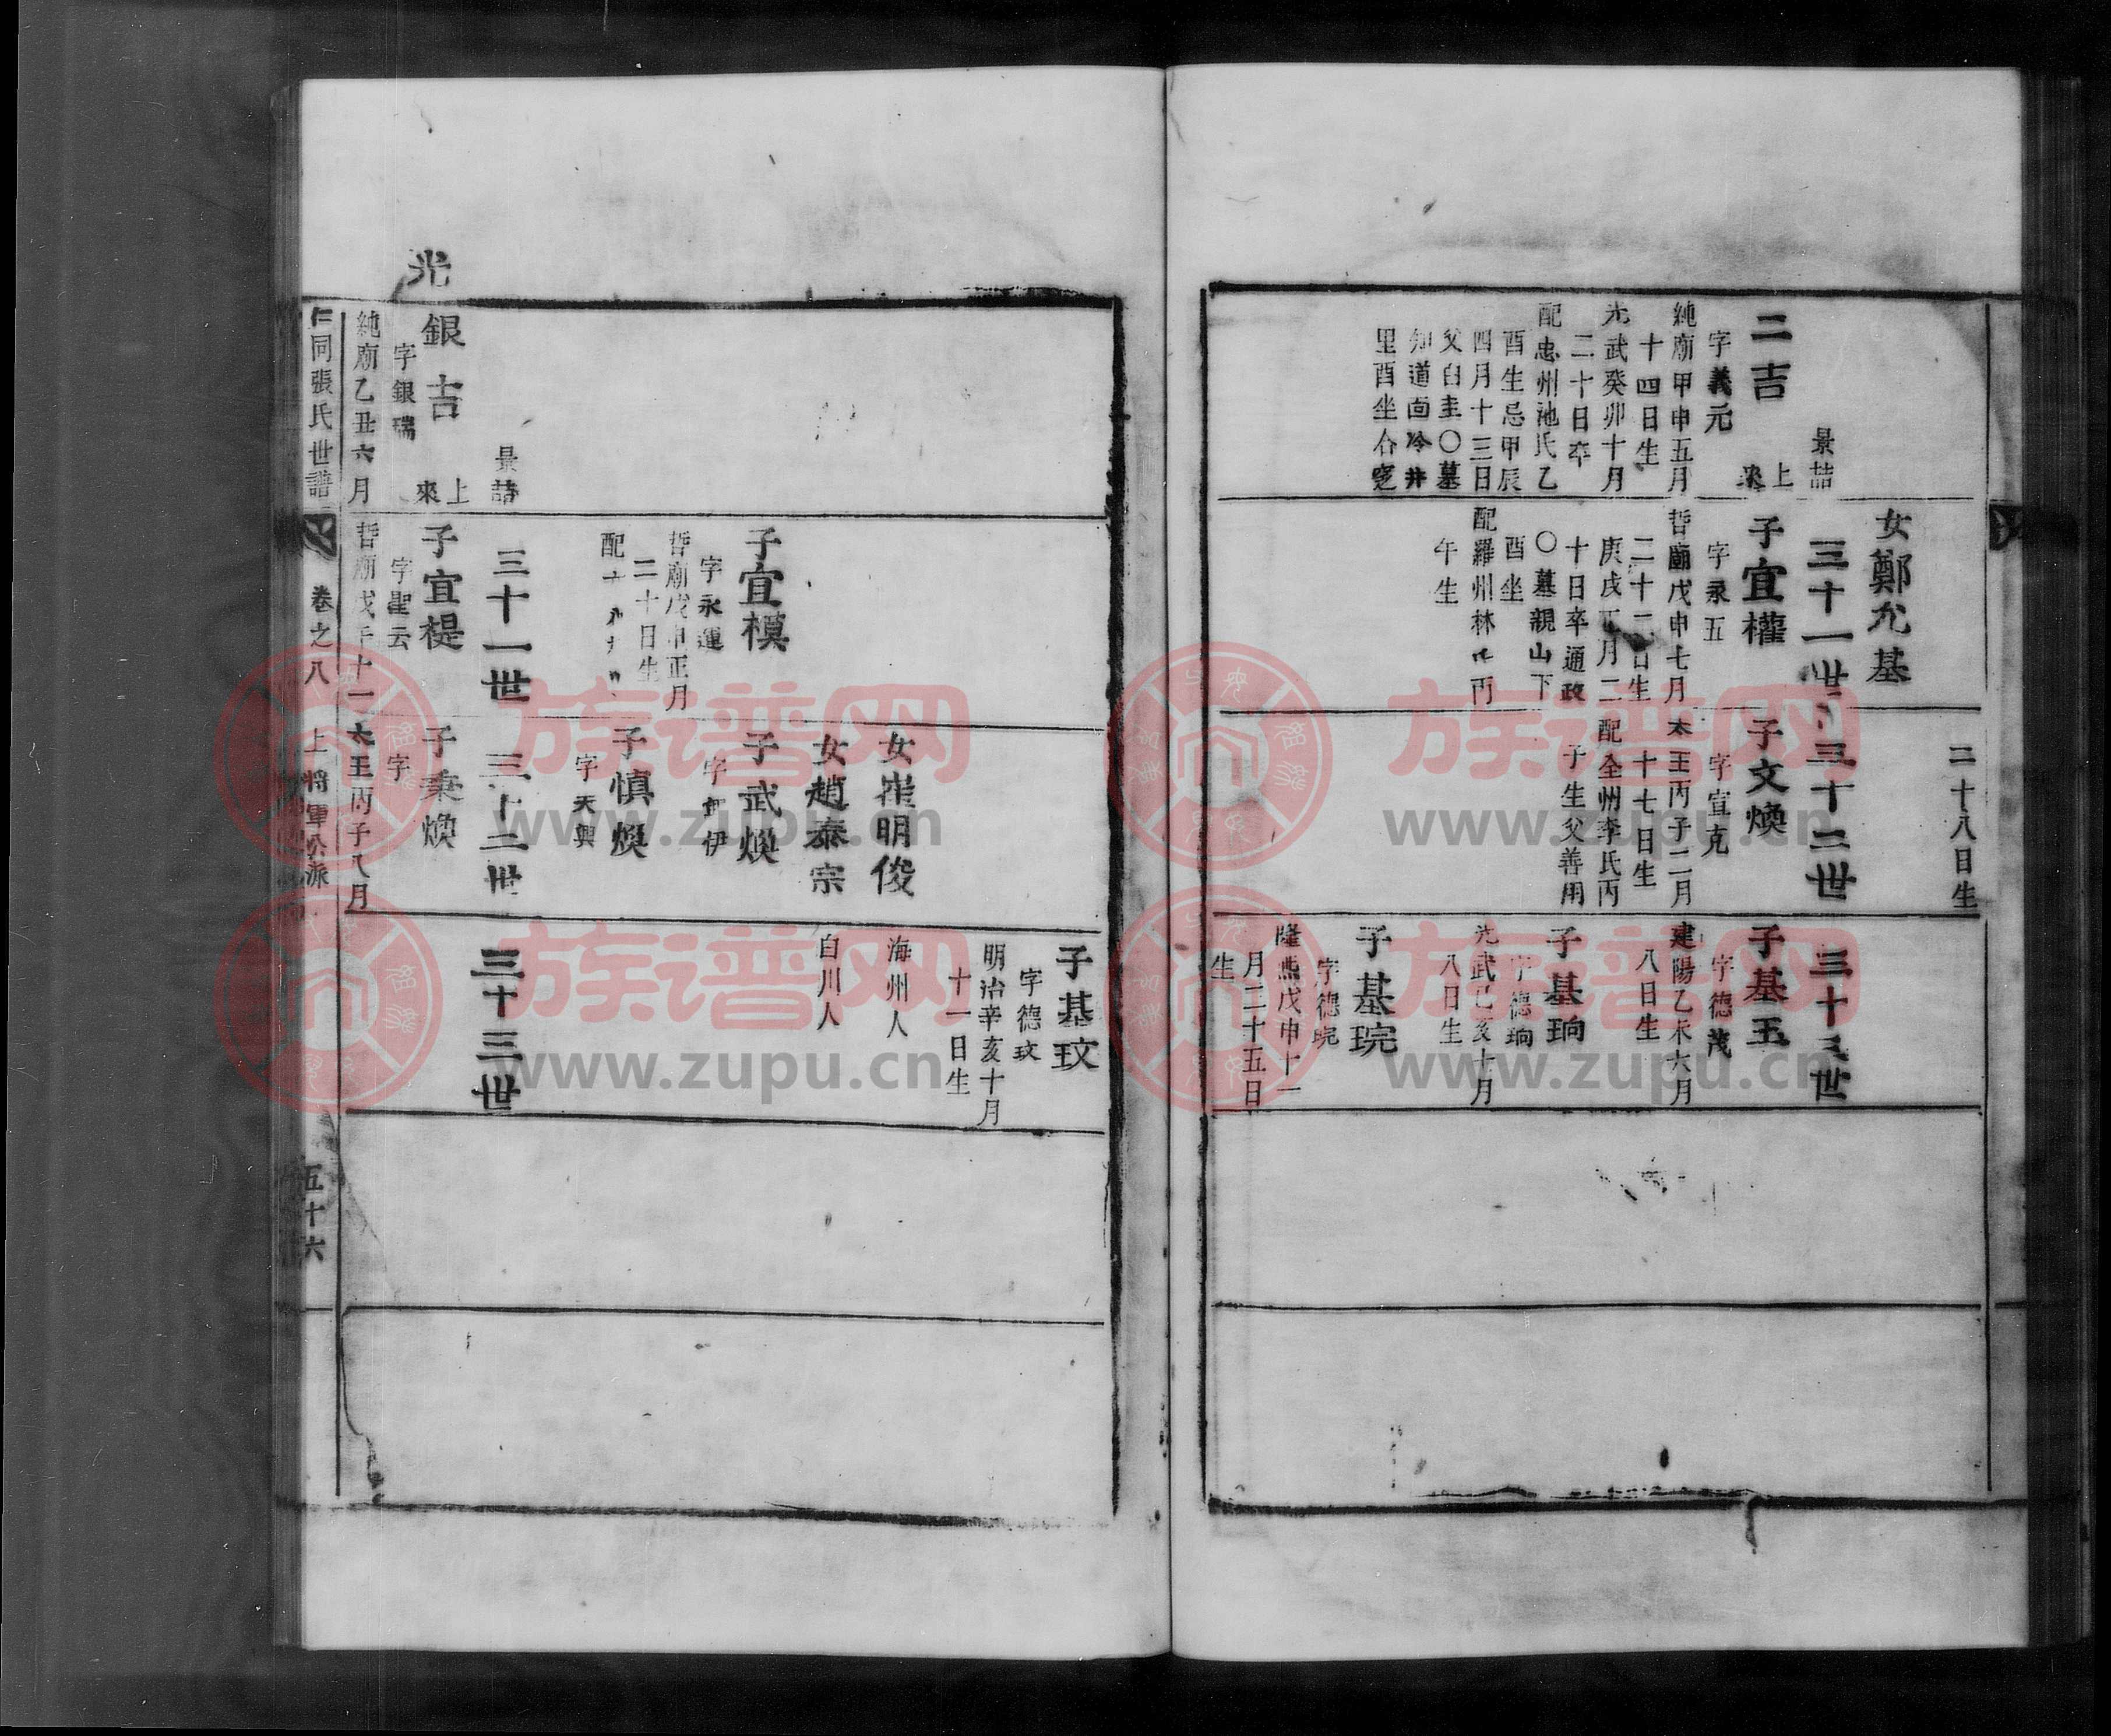 二十八日生
景喆
二吉
上來
字義元
純廟甲申五月
十四日生
光武癸卯十月
二十日卒
配忠州池氏乙
酉生忌甲辰
四月十三日
父白圭〇墓
知道面冷井
里酉坐合窆
女鄭允基
三十一世
子宜權
字永五
哲廟戊申七月
二十二日生
庚戌正月二
十日卒通政
〇墓親山下
酉坐
配羅州林氏丙
午生
三十二世
子文煥
字宣克
太王丙子二月
十七日生
配全州李氏丙
子生父善用
三十三世
子基玉
字德茂
建陽乙未六月
八日生
子基珦
字德珦
光武己亥十月
八日生
子基琓
字德琓
隆熙戊申十一
月二十五日
生
子宜模
字永運
哲廟戊申正月
二十日生
配
女崔明俊
海州人
女趙泰宗
白川人
子武煥
字 伊
子慎煥
字天興
子基玟
字德玟
明治辛亥十月
十一日生
景喆
光
銀吉
上來
字銀瑞
純廟乙丑六月
三十一世
子宜禔
字聖云
哲廟戊午十一
三十二世
子秉煥
字
太王丙子八月
三十三世
仁同張氏世譜
卷之八
上將軍公派
五十六
族谱网
www.zupu.cn
族谱网
www.zupu.cn
族谱网
www.zupu.cn
族谱网
www.zupu.cn